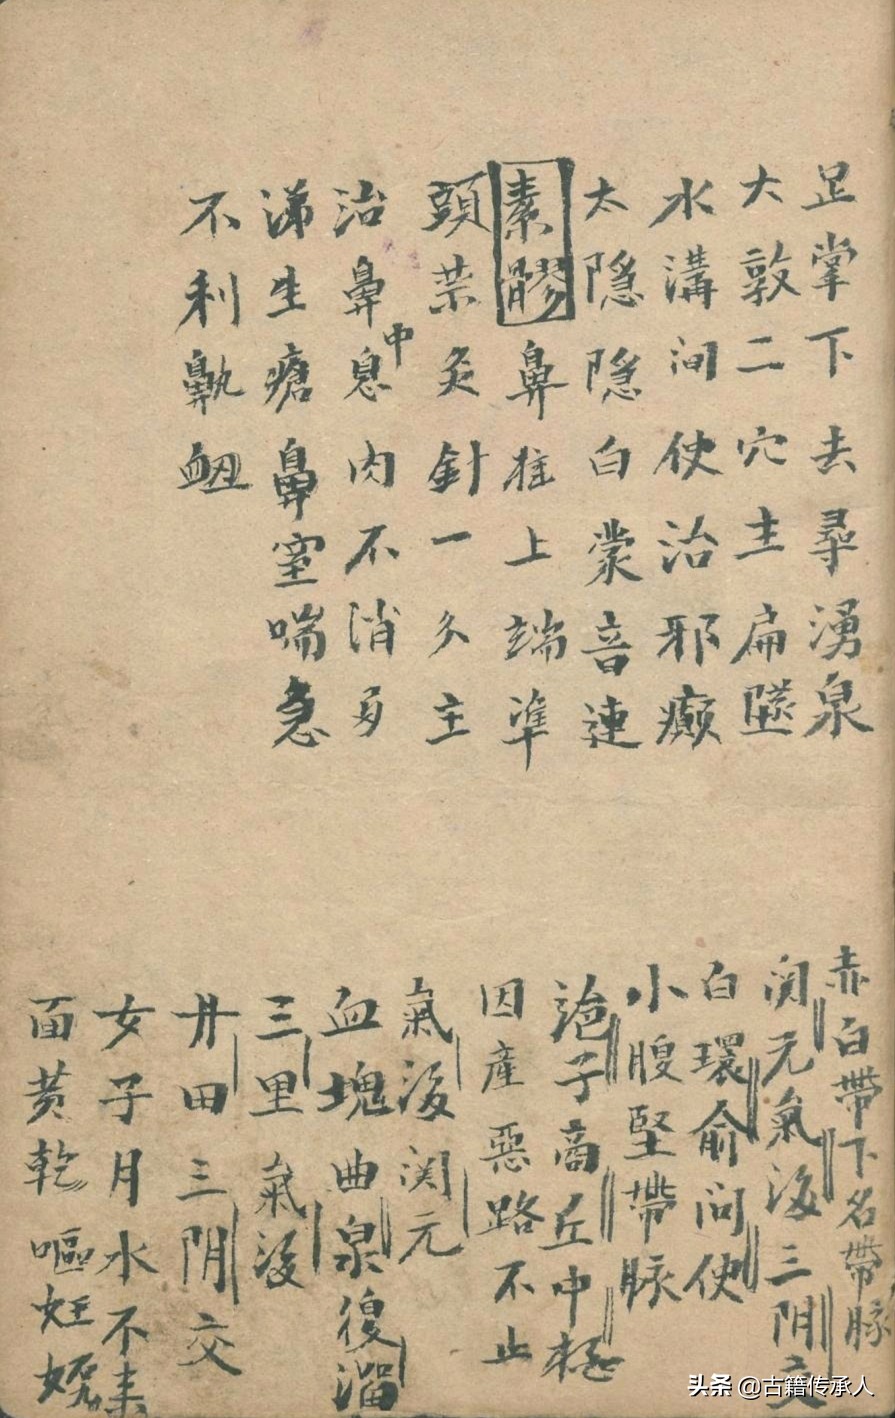 足掌下去尋湧泉
大敦二穴主扁墜
水溝间使治邪癲
太隐隐白蒙音連
素髎鼻柱上端準
頭禁灸針一分主
治鼻中息肉不消多
涕生瘡鼻窒喘急
不利鼽衄
赤白帶下名帶脉
関元氣海三阴交
白環俞间使
小腹堅帶脉
滟子商丘中極
因產惡路不止
氣海関元
血塊曲泉復溜
三里氣海
丹田三阴交
女子月水不来
面黄乾嘔妊娠
头条 @古籍传承人